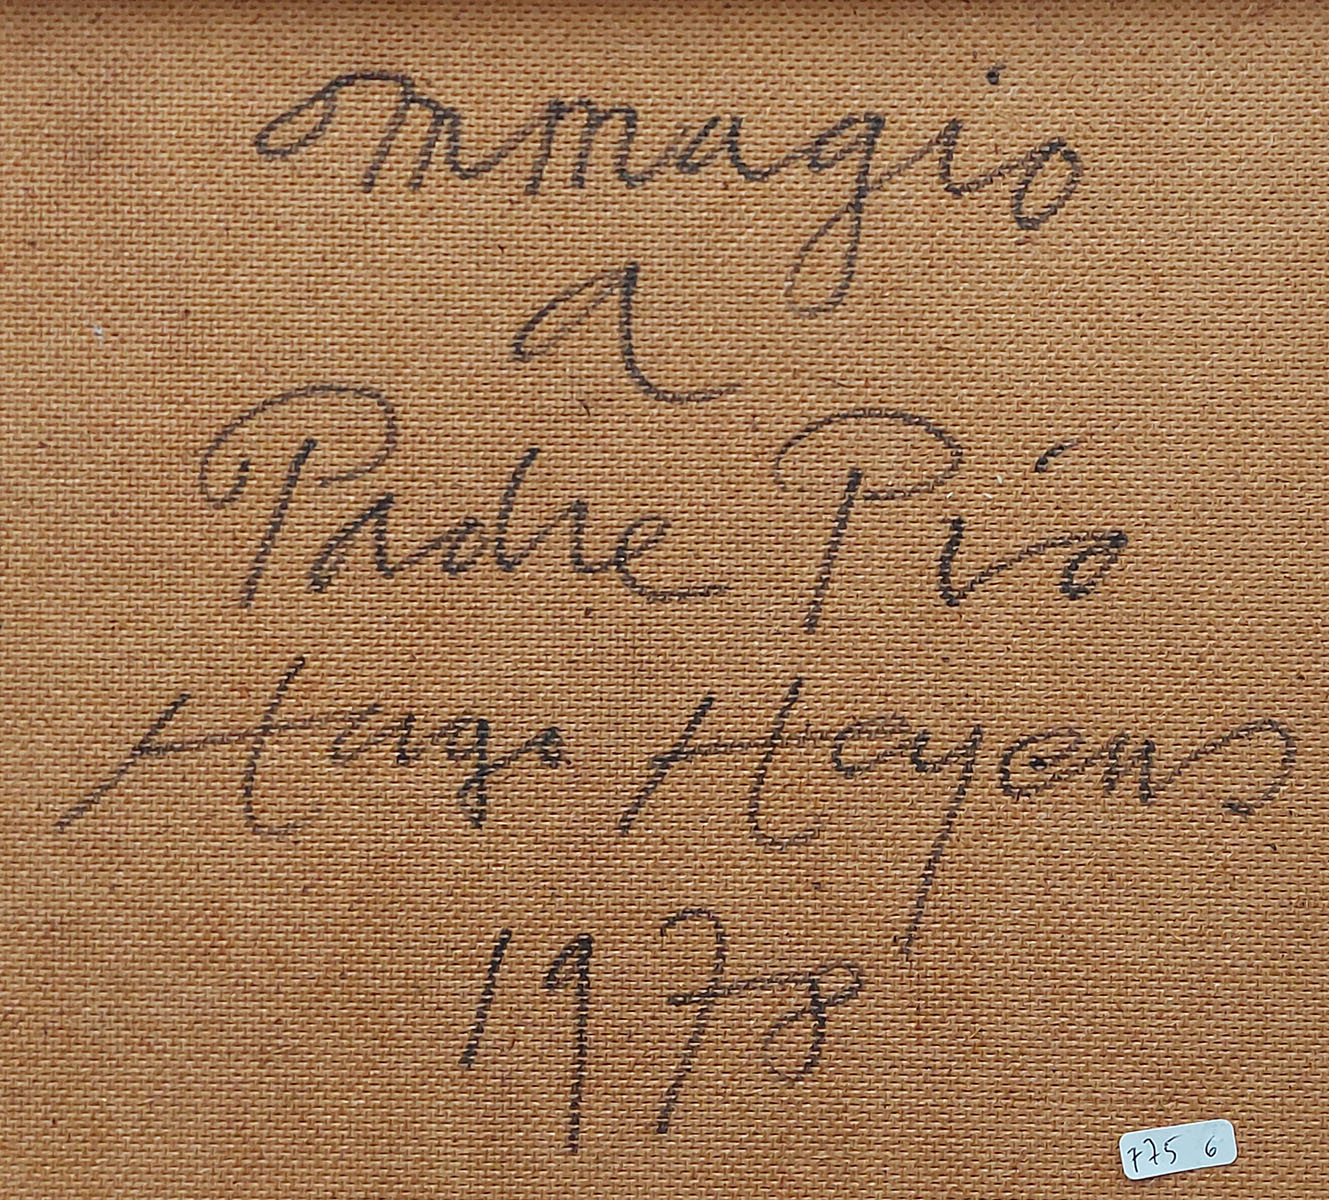 Ommagio
a
Padre Pio
Hugo Heyens
1978
775 6